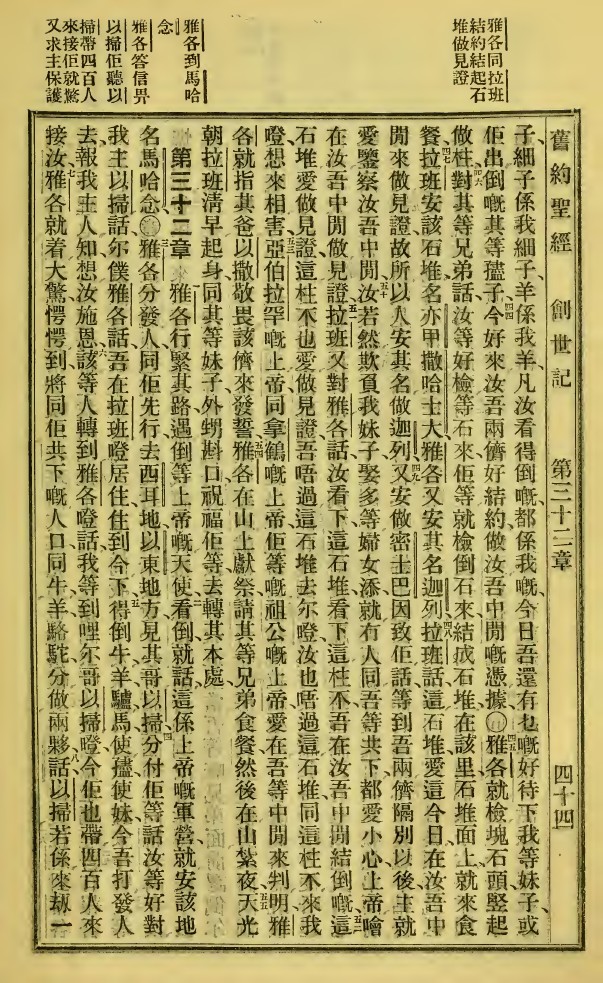 雅各同拉班
結約結起石
堆做見證
雅各到馬哈
念
雅各答信畀
以掃佢聽以
掃帶四百人
來接佢就驚
又求主保護
舊約聖經 創世記 第三十二章 四十四
子細子係我細子羊係我羊凡汝看得倒嘅都係我嘅今日吾還有乜嘅好待下我等妹子或
佢出倒嘅其等孻子四四今好來汝吾兩儕好結約做汝吾中間嘅憑據○四五雅各就檢塊石頭竪起
做柱四六對其等兄弟話汝等好檢等石來佢等就檢倒石來結成石堆在該里石堆面上就來食
餐四七拉班安該石堆名亦甲撒哈士大雅各又安其名迦列四八拉班話這石堆愛這今日在汝吾中
間來做見證故所以人安其名做迦列四九又安做密士巴因致佢話等到吾兩儕隔別以後主就
愛鑒察汝吾中間五十汝若然欺負我妹子娶多等婦女添就有人同吾等共下都愛小心上帝噲
在汝吾中間做見證五一拉班又對雅各話汝看下這石堆看下這柱不吾在汝吾中間結倒嘅五二這
石堆愛做見證這柱不也愛做見證吾唔過這石堆去尔嶝汝也唔過這石堆同這柱不來我
嶝想來相害五三亞伯拉罕嘅上帝同拿鶴嘅上帝佢等嘅祖公嘅上帝愛在吾等中間來判明雅
各就指其爸以撒敬畏該儕來發誓五四雅各在山上獻祭請其等兄弟食餐然後在山紮夜五五天光
朝拉班淸早起身同其等妹子外甥斟口祝福佢等去轉其本處
第三十二章 一雅各行緊其路遇倒等上帝嘅天使二看倒就話這係上帝嘅軍營就安該地
名馬哈念○三雅各分發人同佢先行去西耳地以東地方見其哥以掃四分付佢等話汝等好對
我主以掃話尔僕雅各話吾在拉班嶝居住住到今下五得倒牛羊驢馬使孻使妹今吾打發人
去報我主人知想汝施恩六該等人轉到雅各嶝話我等到哩尔哥以掃嶝今佢也帶四百人來
接汝七雅各就着大驚愕愕到將同佢共下嘅人口同牛羊駱駝分做兩夥八話以掃若係來刼一